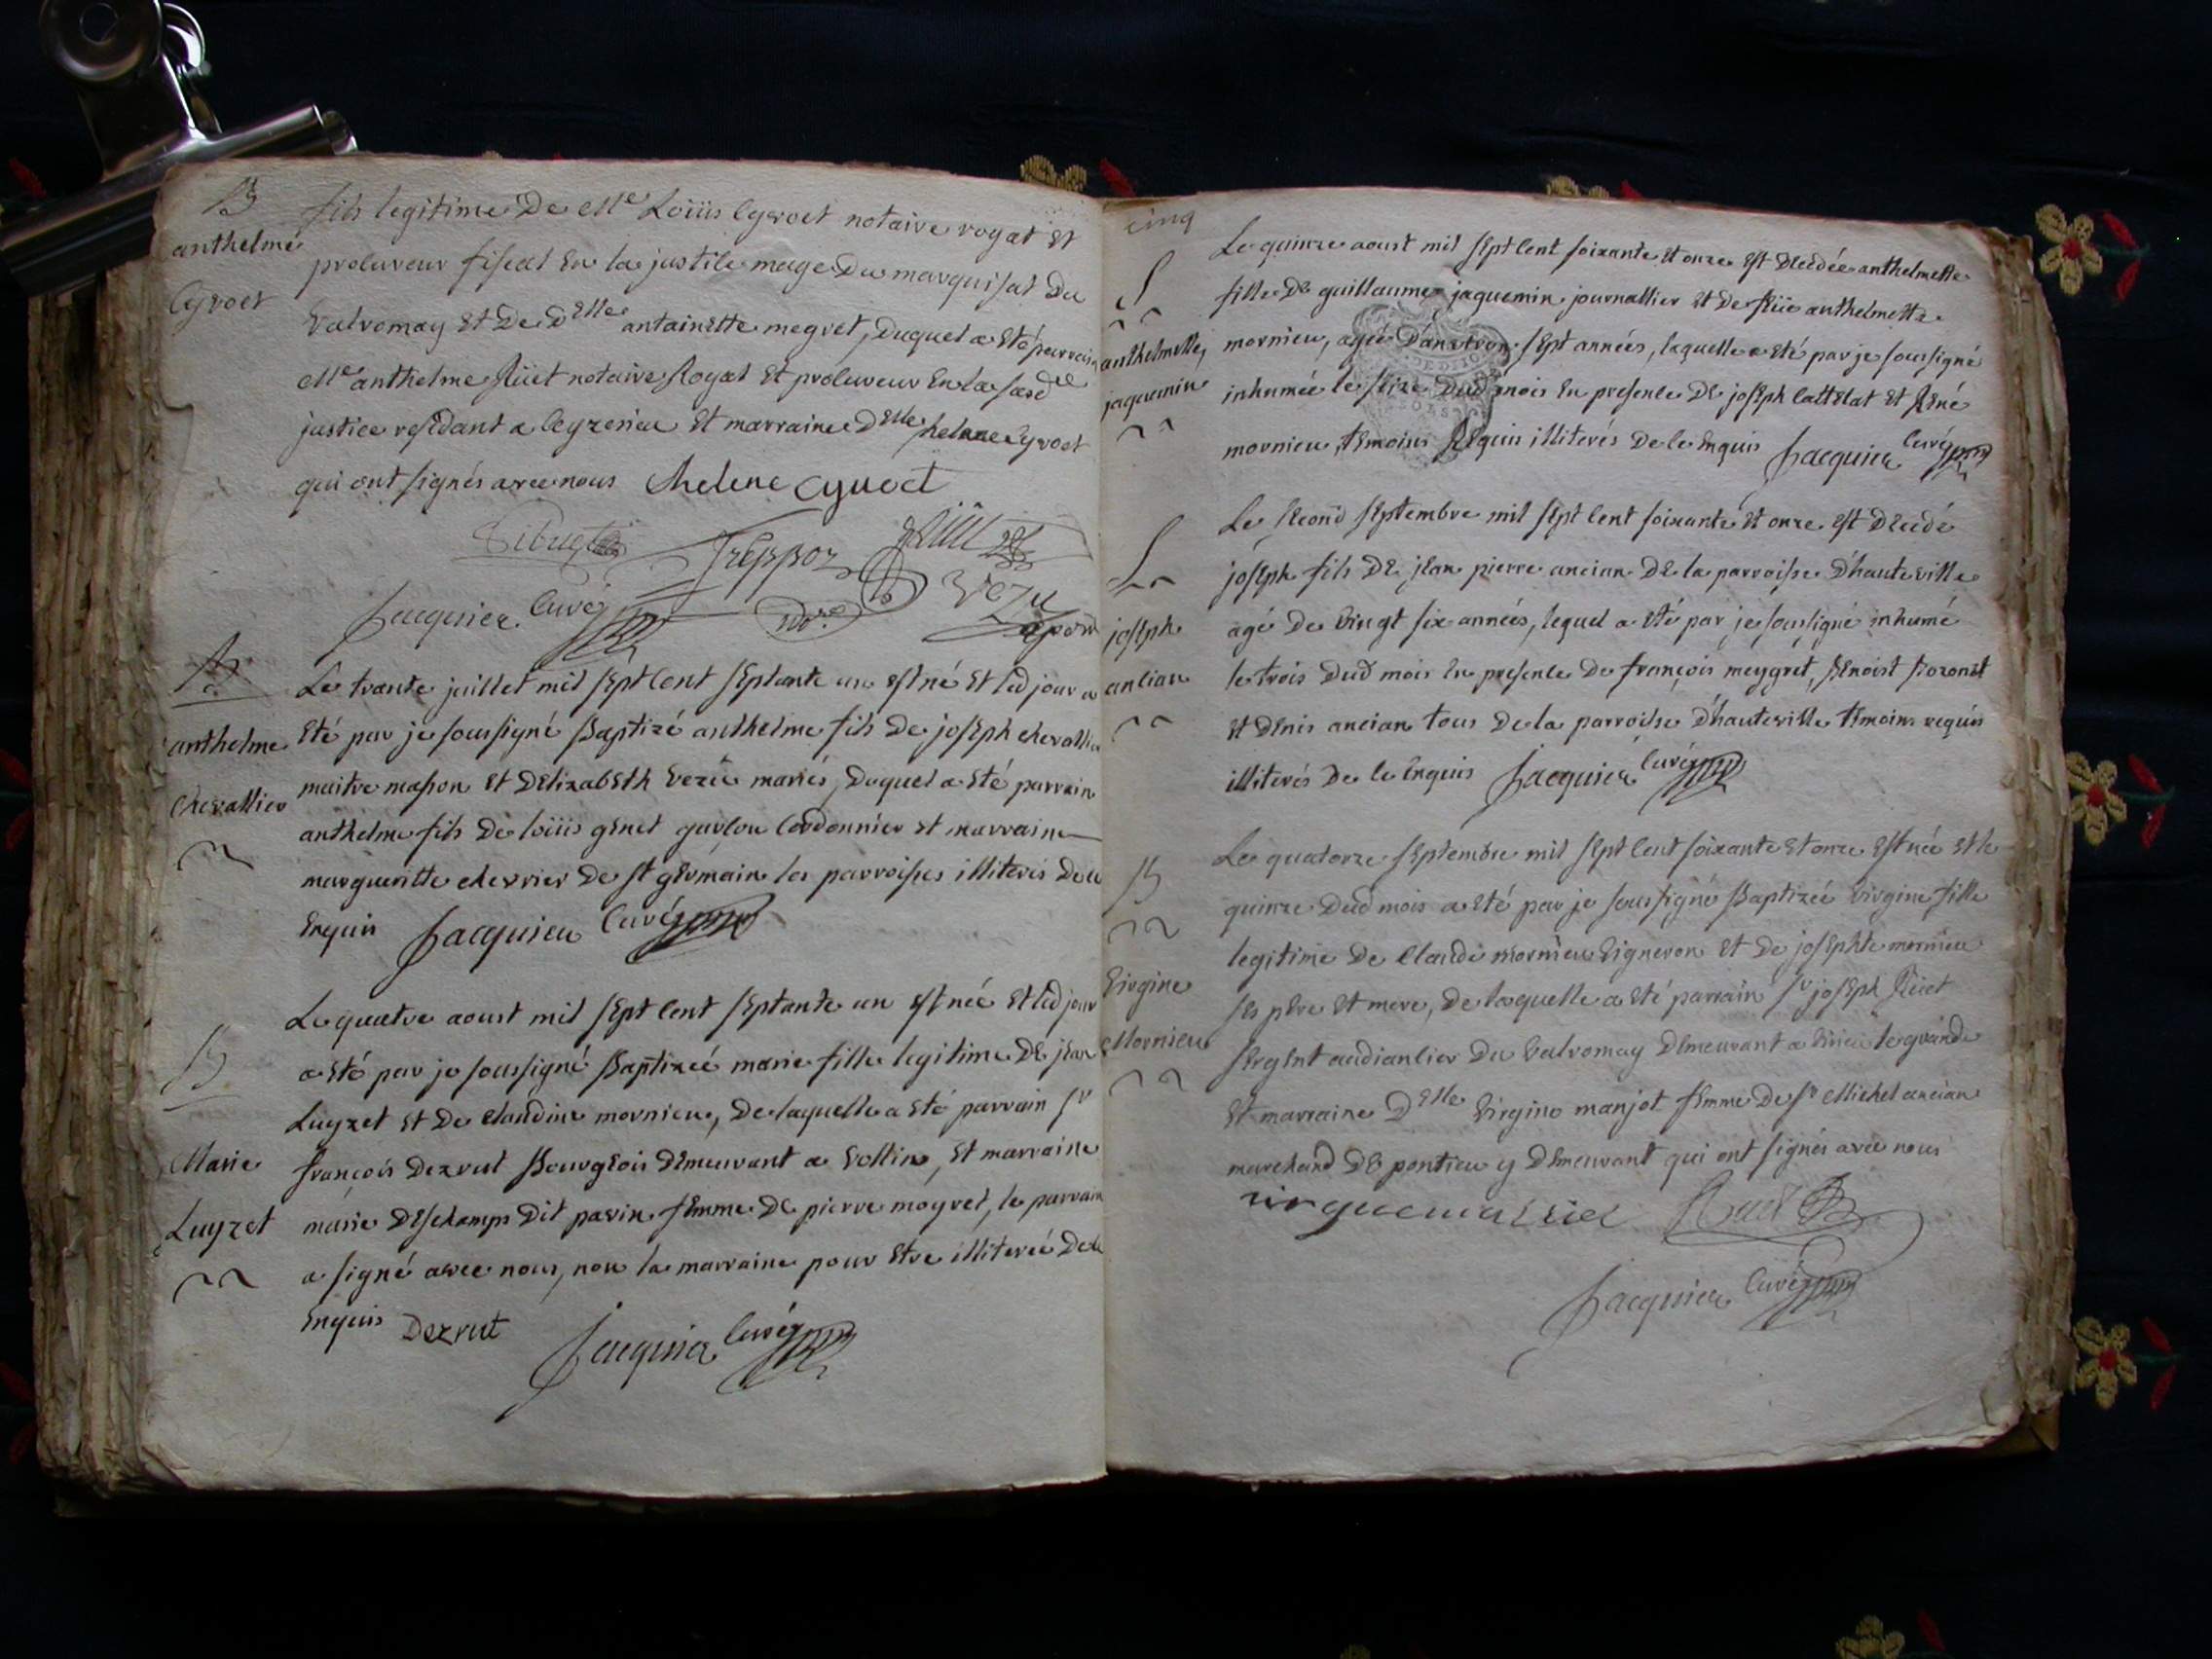 B
anthelme
Cyvoct
fils legitime de Me Loüis Cyvoct notaire royal et
procureur fiscal en la justice mage du marquisat du
valromay et de Delle antainette megret, duquel a eté parrain
Me anthelme Rüet notaire Royal et procureur en la susd
justice residant a Ceyzerieu et marraine Delle helene Cyvoct
qui ont signés avec nous Chelene Cyvoct
Treppoz
Jacquier Curé
B
anthelme
Chevallier
Le trante juillet mil sept cent septante un est né et led jour a
eté par je soussigné Baptizé anthelme fils de joseph chevallier
maitre masson et d'elizabeth vezü mariés, duquel a eté parrain
anthelme fils de loüis genet garçon cordonnier et marraine
margueritte chevrier de st germain les parroisses illiterés de ce
enquis Jacquier Curé
B
Marie
Luyzet
Le quatre aoust mil sept cent septante un est née et led jour
a eté par je soussigné Baptizeé marie fille legitime de jean
Luyzet et de claudine mornieu, de laquelle a eté parrain sr
françois Dezrut Bourgeois demeurant a vollin, et marraine
marie deschamps dit pavin femme de pierre moyret, le parrain
a signé avec nous, non la marraine pour etre illitereé de ce
enquis Dezrut Jacquier Curé
cinq
S
anthelmette
jaquemin
Le quinze aoust mil sept cent soixante et onze est decedée anthelmette
fille de guillaume jaquemin journallier et de füe anthelmette
mornieu, agée d'environ sept années, laquelle a eté par je soussigné
inhumée le seize dud mois en presence de joseph lattelat et René
mornieu, temoins Requis illiterés de ce enquis Jacquier Curé
S
joseph
ancian
Le second septembre mil sept cent soixante et onze est decedé
joseph fils de jean pierre ancian de la parroisse d'hauteville
agé de vingt six années, lequel a eté par je soussigné inhumé
le trois dud mois en presence de françois meygret, Benoist
et denis ancian tous de la parroisse d'hauteville temoins requis
illiterés de ce enquis Jacquier Curé
B
Virgine
Mornieu
Le quatorze septembre mil sept cent soixante et onze est née et le
quinze dud mois a eté par je soussigné Baptizée virgine fille
legitime de Claude mornieu vigneron et de josephte mornieu
ses pere et mere, de laquelle a eté parrain sr joseph Rüet
sergent audiancier du valromay demeurant a virieu le grand
et marraine Delle virgine manjot femme de sr Michel ancian
marchand de pontieu y demeurant qui ont signés avec nous
Ruet
Jacquier Curé